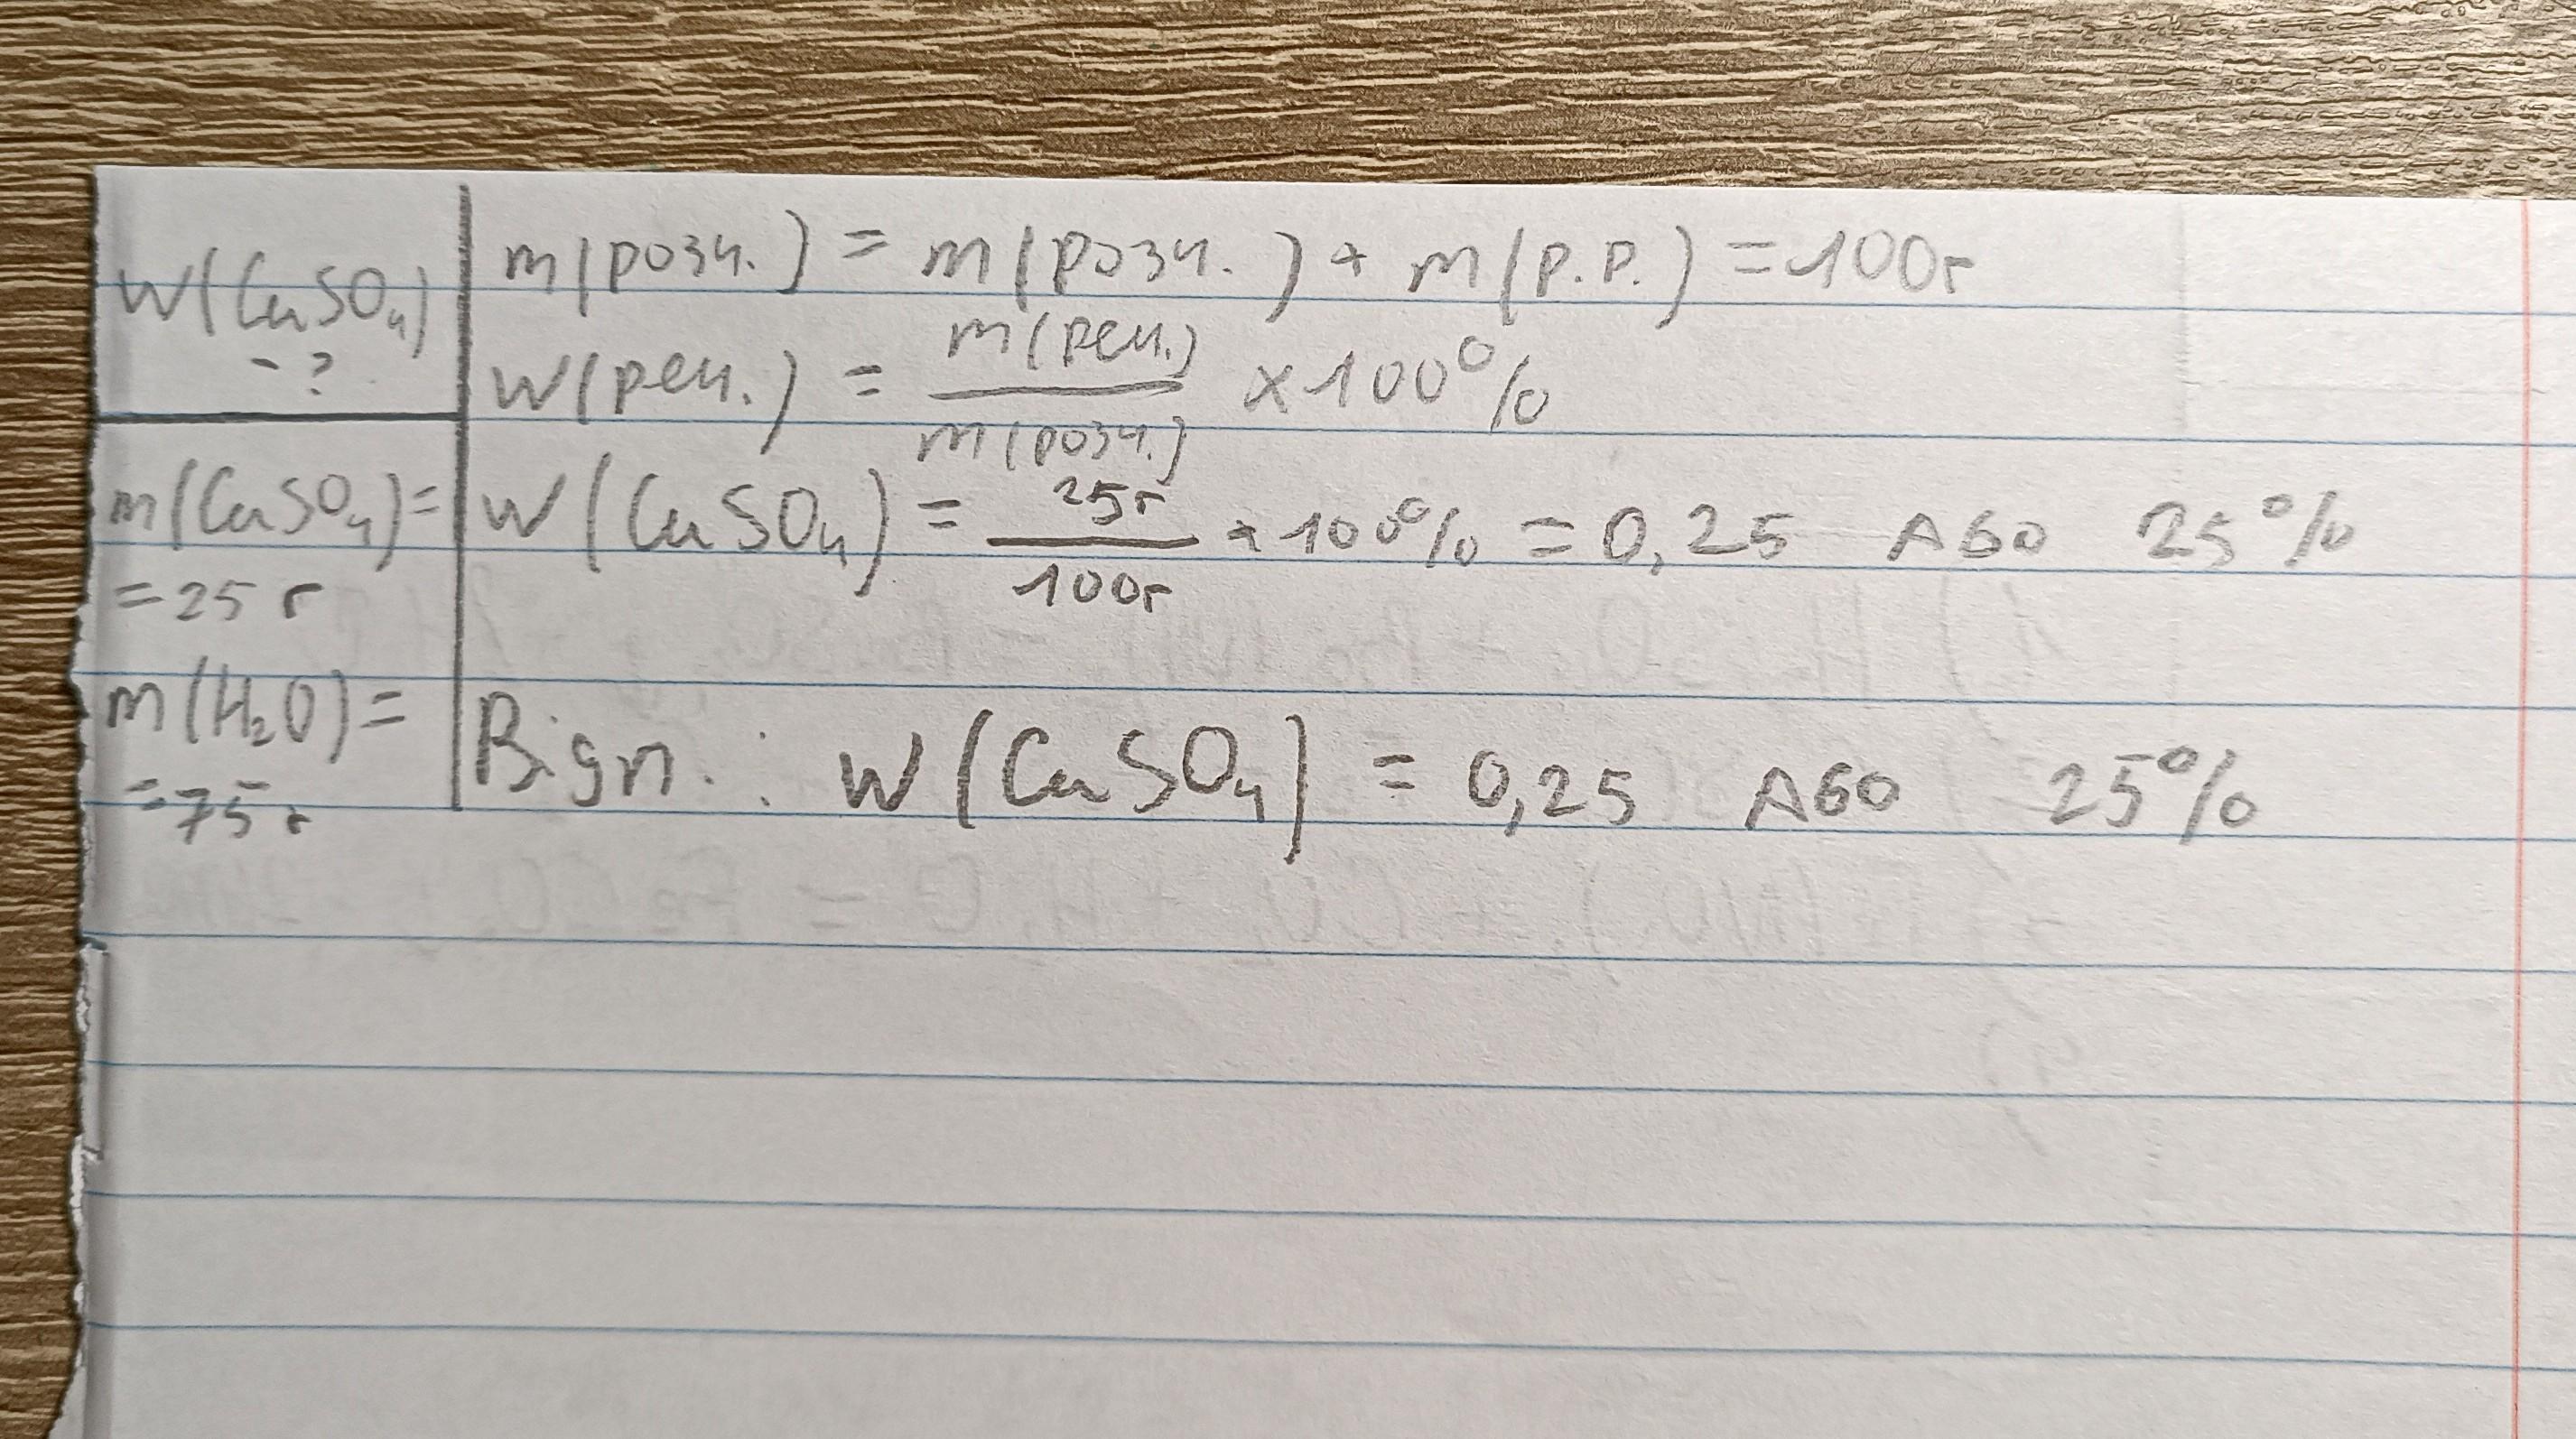 W(CuSO₄)
- ?
m(CuSO₄)=
=25 г
m(H₂O)=
=75 г
m(розч.) = m(розч.) + m(р.р.) = 100г
W(реч.) = m(реч.)/m(розч.) × 100%
W(CuSO₄) = 25г/100г × 100% = 0,25 АБО 25%
Відп. : W(CuSO₄) = 0,25 АБО 25%